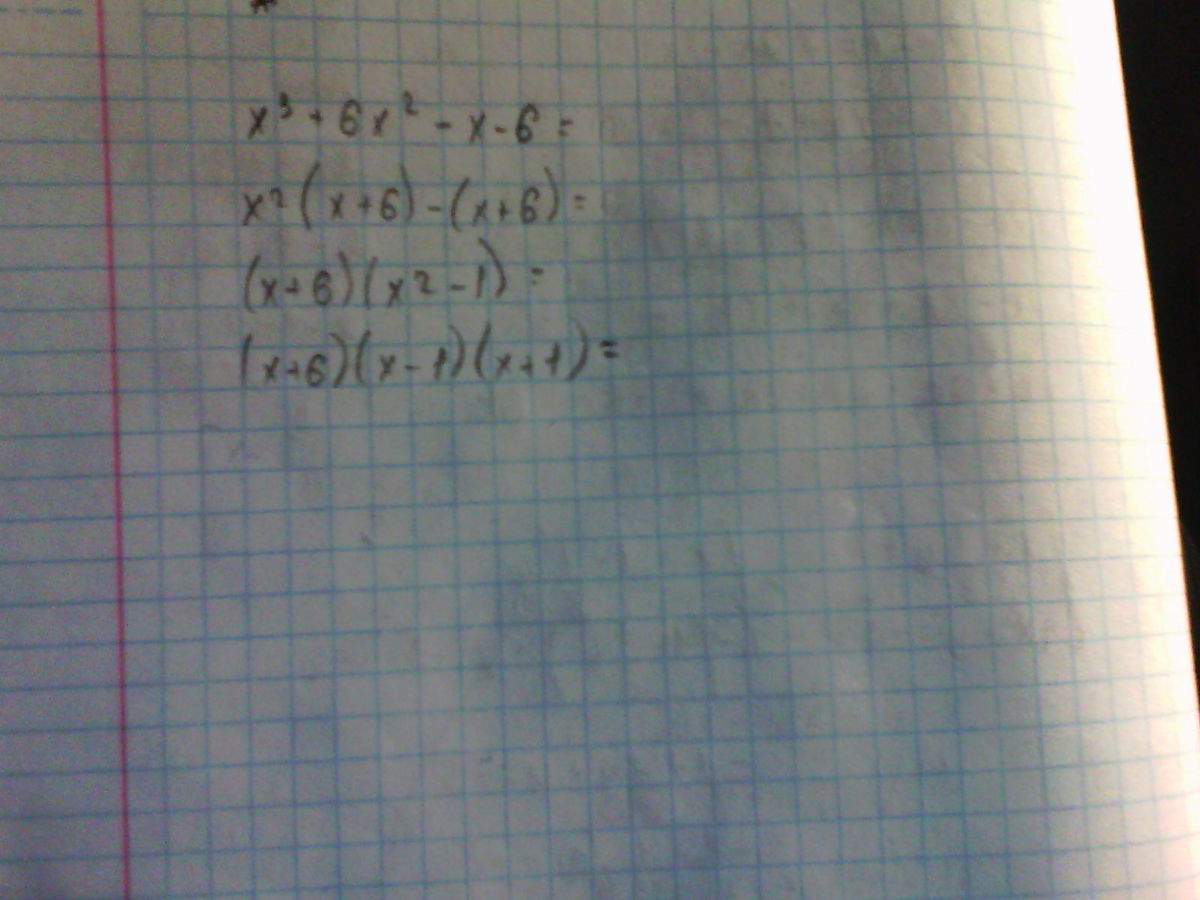 x³ + 6x² - x - 6 =
x²(x+6) - (x+6) =
(x+6)(x² - 1) =
(x+6)(x-1)(x+1) =